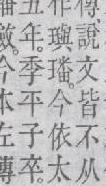 傳說文皆不从
作璵璠。今依太
五年。季平子卒。
璠斂。今本左傳